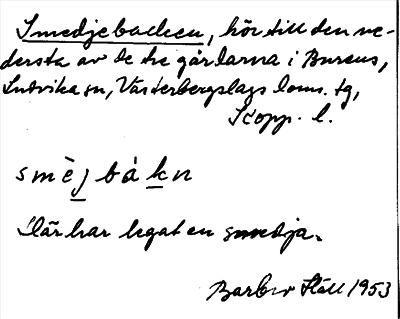 Smedjebacken, hör till den ne-
dersta av de tre gårdarna i Bursus,
Ludvika sn, Västerbergslags doms. tg,
Kopp. l.
smèjbákn
Där har legat en smedja.
Ståll 1953